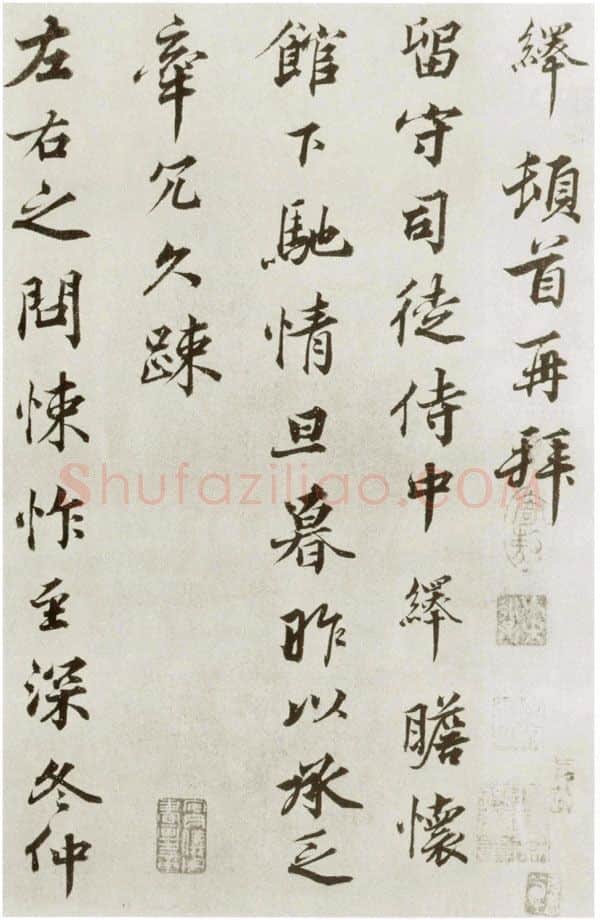 繹頓首再拜
留守司徒侍中繹瞻懷
館下馳情旦暮昨以承乏
牽冗久踈
左右之問悚怍至深冬仲
Shufaziliao.com